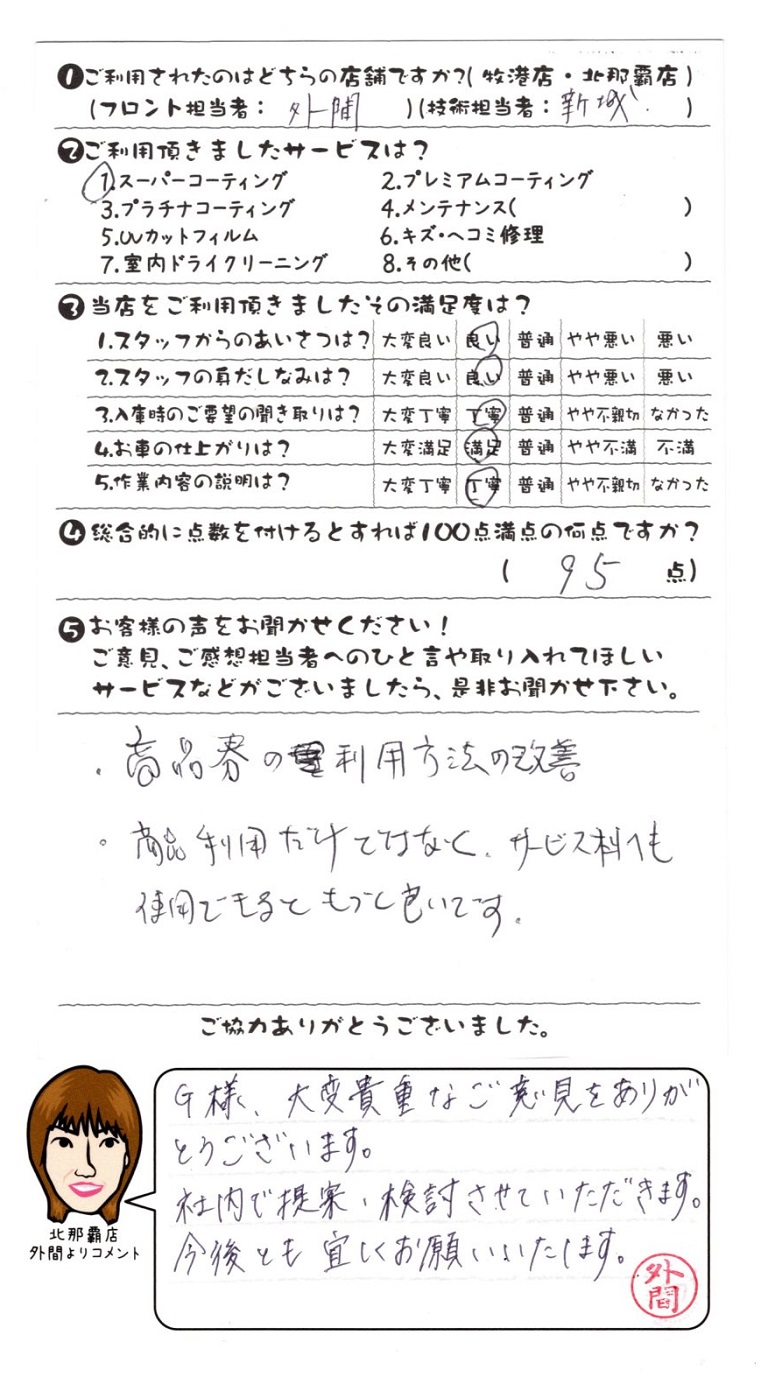 ❶ご利用されたのはどちらの店舗ですか?(牧港店・北那覇店)
(フロント担当者: 外間 )(技術担当者: 新城 )
❷ご利用頂きましたサービスは?
1.スーパーコーティング 2.プレミアムコーティング
3.プラチナコーティング 4.メンテナンス( )
5.UVカットフィルム 6.キズ・ヘコミ修理
7.室内ドライクリーニング 8.その他( )
❸当店をご利用頂きましたその満足度は?
1.スタッフからのあいさつは? 大変良い 良い 普通 やや悪い 悪い
2.スタッフの身だしなみは? 大変良い 良い 普通 やや悪い 悪い
3.入庫時のご要望の聞き取りは? 大変丁寧 丁寧 普通 やや不親切 なかった
4.お車の仕上がりは? 大変満足 満足 普通 やや不満 不満
5.作業内容の説明は? 大変丁寧 丁寧 普通 やや不親切 なかった
❹総合的に点数を付けるとすれば100点満点の何点ですか?
( 95 点)
❺お客様の声をお聞かせください!
ご意見、ご感想担当者へのひと言や取り入れてほしい
サービスなどがございましたら、是非お聞かせ下さい。
・商品券の利用方法の改善
・商品利用だけではなく、サービス料へも
使用できるともっと良いです。
ご協力ありがとうございました。
G様、大変貴重なご意見をありが
とうございます。
社内で提案・検討させていただきます。
今後とも宜しくお願いいたします。
外間
北那覇店
外間よりコメント